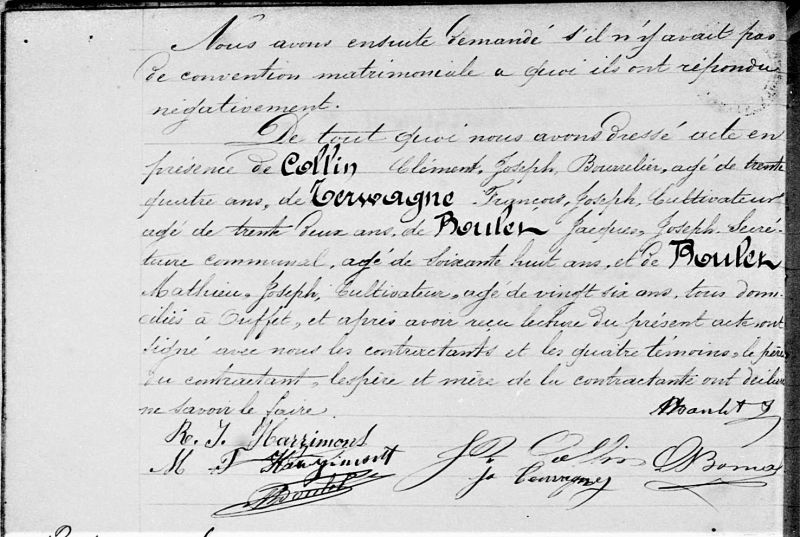 Nous avons ensuite demandé s'il n'y avait pas
de convention matrimoniale a quoi ils ont répondu
négativement.
De tout quoi nous avons dressé acte en
présence de Collin Clément, Joseph, Bourrelier, agé de trente
quatre ans, de Terwagne François, Joseph, Cultivateur
agé de trente deux ans, de Boulet Jacques, Joseph, Secré-
taire communal, agé de soixante huit ans, et de Boulet
Mathieu, Joseph, Cultivateur, agé de vingt six ans, tous domi-
ciliés à Ouffet, et après avoir reçu lecture du présent acte ont
signé avec nous les contractants et les quatre témoins, le père
du contractant, les père et mère de la contractante ont déclaré
ne savoir le faire.
R. J. Harzimont
M J Harzimont
Boulet
Collin